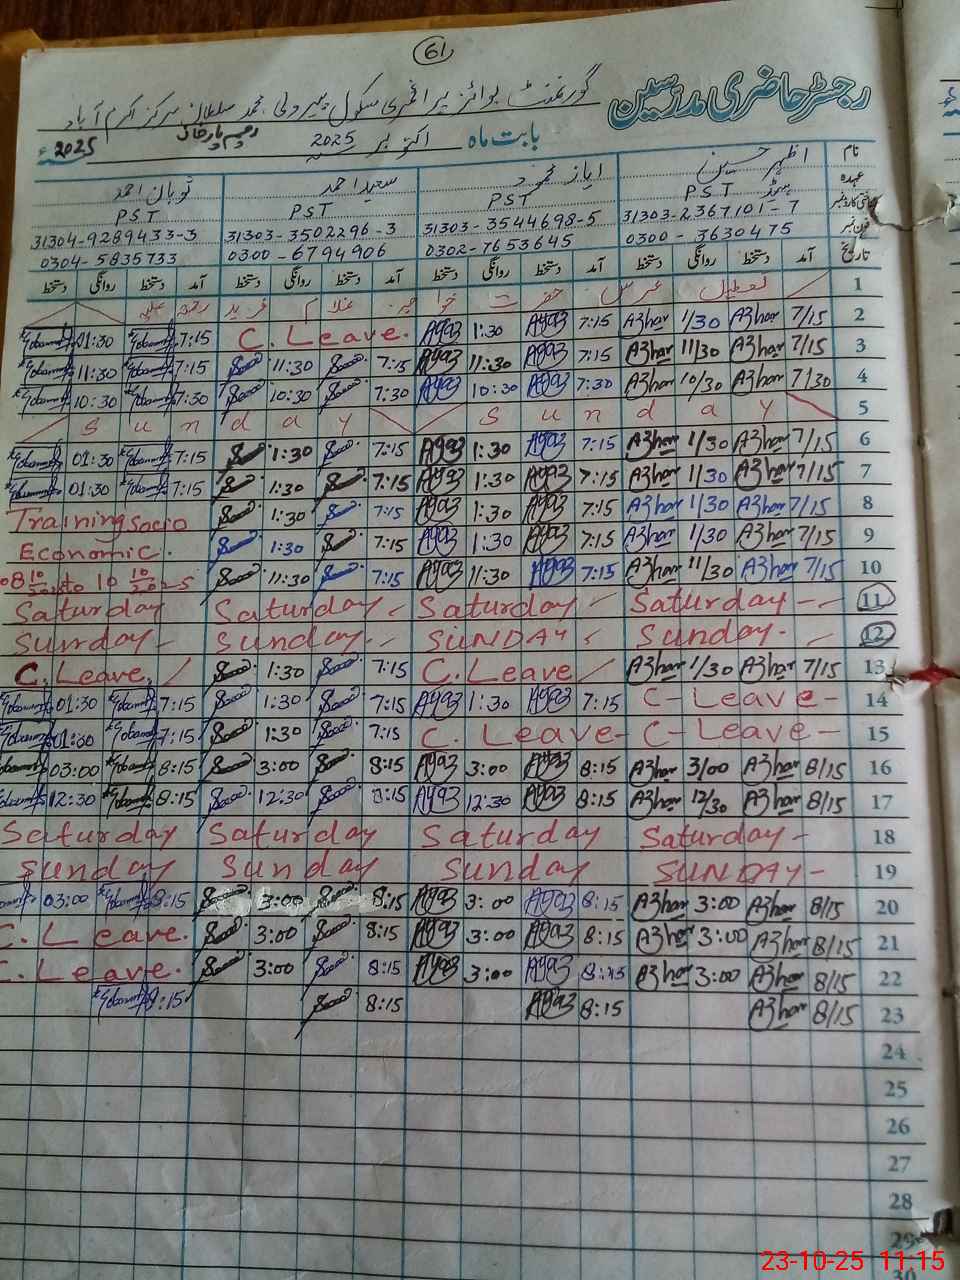 61
رجسٹر حاضری مدرسین
گورنمنٹ بوائز پرائمری سکول محمد سلطان مرکز اکرم آباد
بابت ماہ اکتوبر 2025 رحیم یار خان 2025ء
نام اظہر حسین ایاز محمود سعید احمد ثوبان احمد
عہدہ ہیڈ PST PST PST PST
31303-2367101-7 31303-3544698-5 31303-3502296-3 31304-9289433-3
فون نمبر 0300-3630475 0302-7653645 0300-6794906 0304-5835733
تاریخ آمد دستخط روانگی دستخط آمد دستخط روانگی دستخط آمد دستخط روانگی دستخط آمد دستخط روانگی دستخط
1 تعطیل عرس حضرت خواجہ غلام فرید رحمۃ علیہ
01:30 7:15 C. Leave. Ayaz 1:30 Ayaz 7:15 Azhar 1/30 Azhar 7/15 2
11:30 7:15 11:30 7:15 Ayaz 11:30 Ayaz 7:15 Azhar 11/30 Azhar 7/15 3
10:30 7:30 10:30 7:30 Ayaz 10:30 Ayaz 7:30 Azhar 10/30 Azhar 7/30 4
S u n d a y S u n d a y 5
01:30 7:15 1:30 7:15 Ayaz 1:30 Ayaz 7:15 Azhar 1/30 Azhar 7/15 6
01:30 7:15 1:30 7:15 Ayaz 1:30 Ayaz 7:15 Azhar 1/30 Azhar 7/15 7
Training Socio 1:30 7:15 Ayaz 1:30 Ayaz 7:15 Azhar 1/30 Azhar 7/15 8
Economic. 1:30 7:15 Ayaz 1:30 Ayaz 7:15 Azhar 1/30 Azhar 7/15 9
08 10/2025 to 10 10/2025 11:30 7:15 Ayaz 11:30 Ayaz 7:15 Azhar 11/30 Azhar 7/15 10
Saturday Saturday Saturday Saturday 11
Sunday Sunday SUNDAY Sunday 12
C. Leave. 1:30 7:15 C. Leave Azhar 1/30 Azhar 7/15 13
01:30 7:15 1:30 7:15 Ayaz 1:30 Ayaz 7:15 C- Leave- 14
01:30 7:15 1:30 7:15 C. Leave- C- Leave- 15
03:00 8:15 3:00 8:15 Ayaz 3:00 Ayaz 8:15 Azhar 3/00 Azhar 8/15 16
12:30 8:15 12:30 8:15 Ayaz 12:30 Ayaz 8:15 Azhar 12/30 Azhar 8/15 17
Saturday Saturday Saturday Saturday- 18
Sunday Sunday Sunday SUNDAY- 19
03:00 8:15 3:00 8:15 Ayaz 3:00 Ayaz 8:15 Azhar 3:00 Azhar 8/15 20
C. Leave. 3:00 8:15 Ayaz 3:00 Ayaz 8:15 Azhar 3:00 Azhar 8/15 21
C. Leave. 3:00 8:15 Ayaz 3:00 Ayaz 8:15 Azhar 3:00 Azhar 8/15 22
8:15 8:15 Ayaz 8:15 Azhar 8/15 23
24
25
26
27
28
29
30
23-10-25 11:15